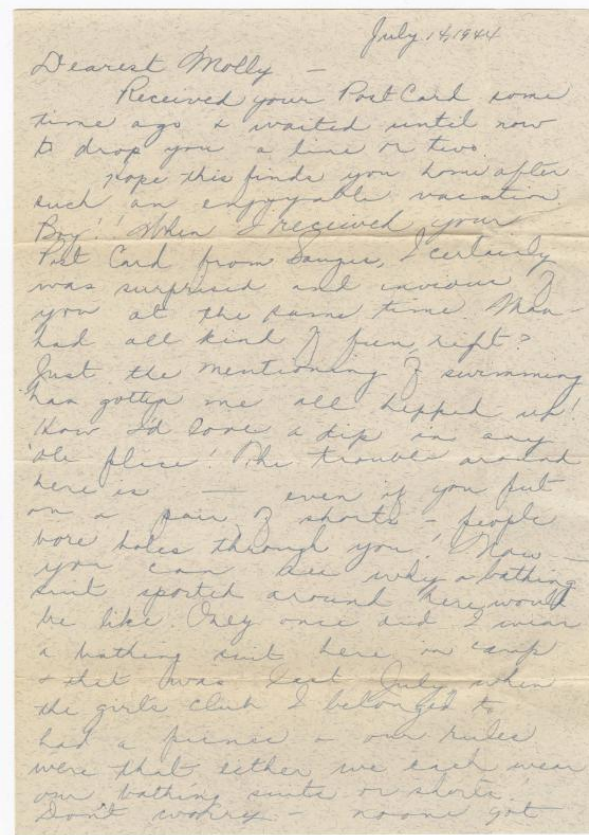 July 14, 1944
Dearest Molly —
Received your Post Card some
time ago & waited until now
to drop you a line or two.
Hope this finds you home after
such an enjoyable vacation.
Boy!! When I received your
Post Card from Sanger, I certainly
was surprised and envious of
you at the same time. Man —
had all kind of fun, right?
Just the mentioning of swimming
has gotten me all hepped up!
How I'd love a dip in any
'ole place! The trouble around
here is — even if you put
on a pair of shorts — people
bore holes through you! Now —
you can see why a bathing
suit sported around here would
be like. Only once did I wear
a bathing suit here in camp
& that was last July when
the girls club I belonged to
had a picnic & our rules
were that either we each wear
our bathing suits or shorts.
Don't worry — noone got